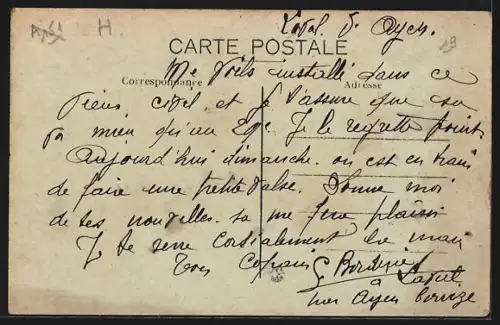 H.
Laval. d. Ayen.
19
CARTE POSTALE
Correspondance
Adresse
Me voila installé dans ce
vieux et je t'assure que sa
va mieu qu'au 20e. Je le regrette point
Aujourd'hui dimanche. on est en train
de faire une petite valse. Donne moi
de tes nouvelles. sa me fera plaisir
Je te serre cordialement la main
Ton Copain
Laval
par Ayen Corrèze